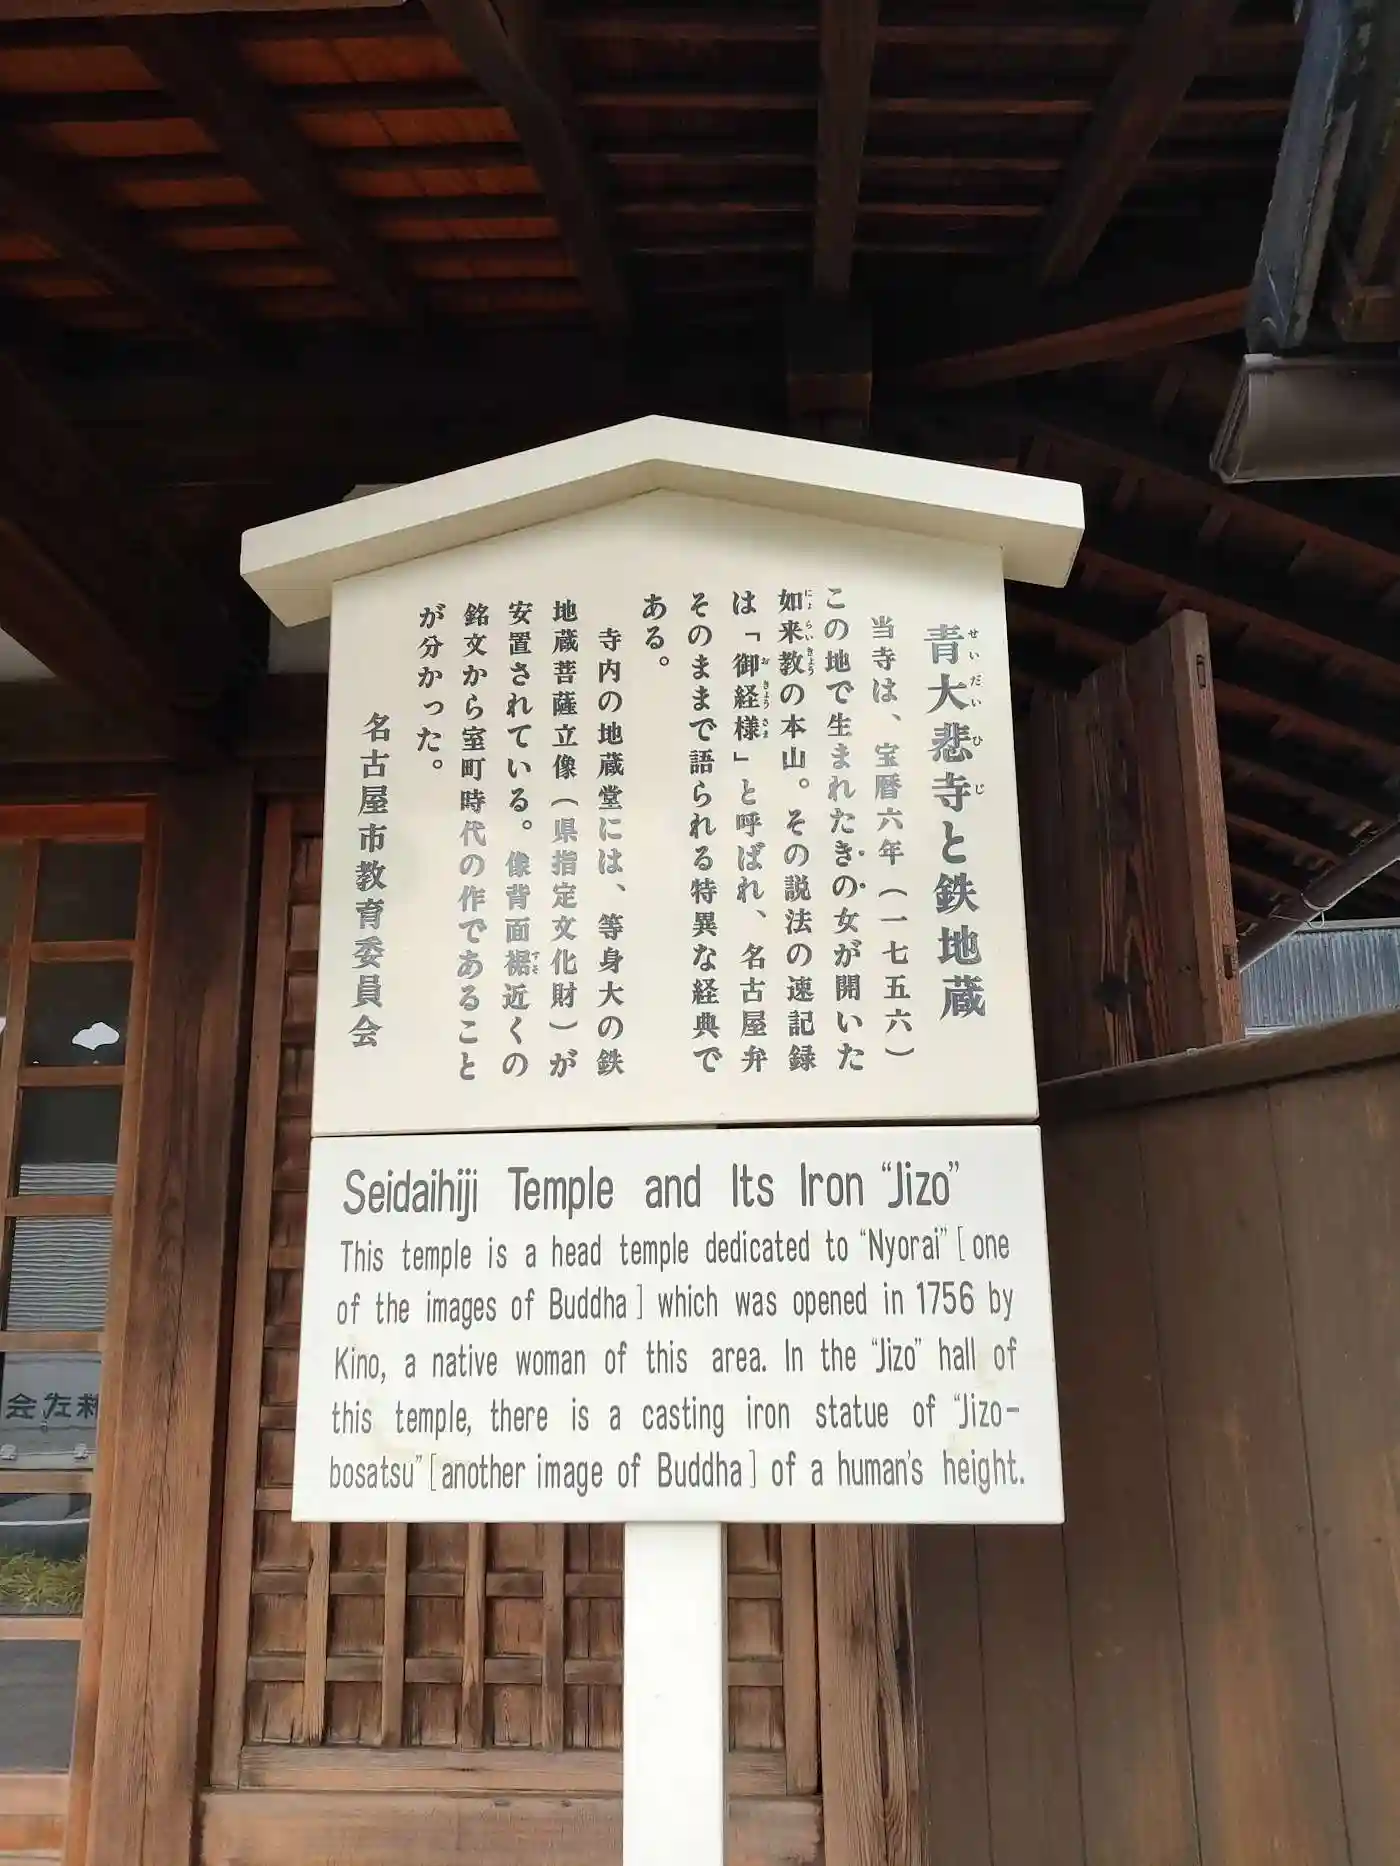 青大悲寺と鉄地蔵
せいだいひじ
当寺は、宝暦六年(一七五六)
この地で生まれたきの女が開いた
如来教の本山。その説法の速記録
にょらいきょう
は「御経様」と呼ばれ、名古屋弁
おきょうさま
そのままで語られる特異な経典で
ある。
寺内の地蔵堂には、等身大の鉄
地蔵菩薩立像(県指定文化財)が
安置されている。像背面裾近くの
すそ
銘文から室町時代の作であること
が分かった。
名古屋市教育委員会
Seidaihiji Temple and Its Iron “Jizo”
This temple is a head temple dedicated to “Nyorai” [ one
of the images of Buddha ] which was opened in 1756 by
Kino, a native woman of this area. In the “Jizo” hall of
this temple, there is a casting iron statue of “Jizo-
bosatsu” [ another image of Buddha ] of a human's height.